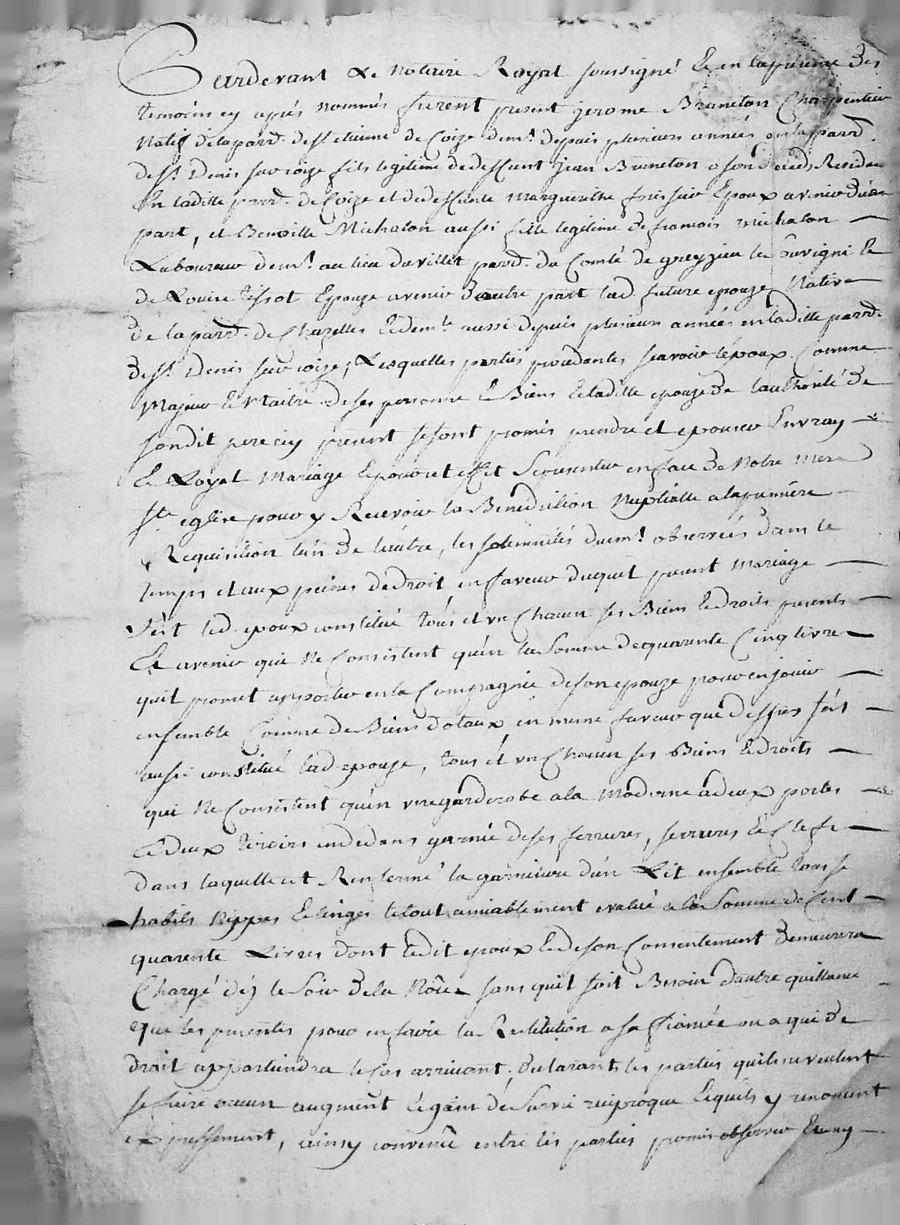 Pardevant Le Notaire Royal soussigné Et en la presence Des
temoins cy apprés nommés furent present jerome Bruneton Charpentier
Natif de la parr. de st etienne de Coize dem.t depuis plusieurs années en la parr.
de st. Denis sur coize fils legitime de deffunt jean Bruneton a son deced, Residen
En laditte parr. de Coize et de deffunte Margueritte Epoux avenir d'une
part, et Benoitte Michalon aussi fille legitime de francois Michalon
Laboureur dem.t au lieu du villet parr. du Comté de greyzieu le &
de Louise tissot Epouze avenir d'autre part lad future epouze Native
de la parr. de Chazelles & dem.te aussi depuis plusieurs années en laditte parr.
de st. Denis sur coize, Lesquelles parties procedantes scavoir l'epoux Comme
Majeur & Maitre de ses personne & Biens & laditte epouze de l'authorité de
sondit pere icy present se sont promis prendre et epouser En vray
& Loyal Mariage & pour cet effet se presenter en face de Notre Mere
ste eglise pour y Recevoir la Benediction Nuptialle a la premiere
Requisition l'un de l'autre, les solemnités duem.t observées dans le
temps et aux peines de droit, en faveur duquel present Mariage
s'est led. epoux constitué tous et un Chacun ses Biens & droits presents
Et avenir qui Ne Consistent qu'en la somme de quarente Cinq livre
quil promet apporter en la Compagnie de son epouze pour en jouir
ensemble Comme de Biens dotaux en meme faveur que dessus s'est
aussi constitué lad epouze, tous et un Chacun ses Biens & droits
qui Ne Consistent qu'en une garderobe a la Moderne a deux portes
& deux tiroirs en dedans garnie de ses ferrures, serrures & Clefs
dans laquelle est Renfermé la garniture d'un Lit ensemble tous se
habits Nippes & linges le tout amiablement evalué a la Somme de Cent
quarente Livres dont ledit epoux & de son Consentement demeurera
Chargé dez le Soir de la Noce sans quil soit Besoin d'autre quittance
que les presentes pour en faire la Restitution a sa fiancée ou a qui de
droit appartiendra le Cas arrivant. Declarants les parties quils ne veulent
se faire aucun augment & gain de Survie reciproque & quils y renoncent
expressement, ainsy convenû entre les parties promis observer &